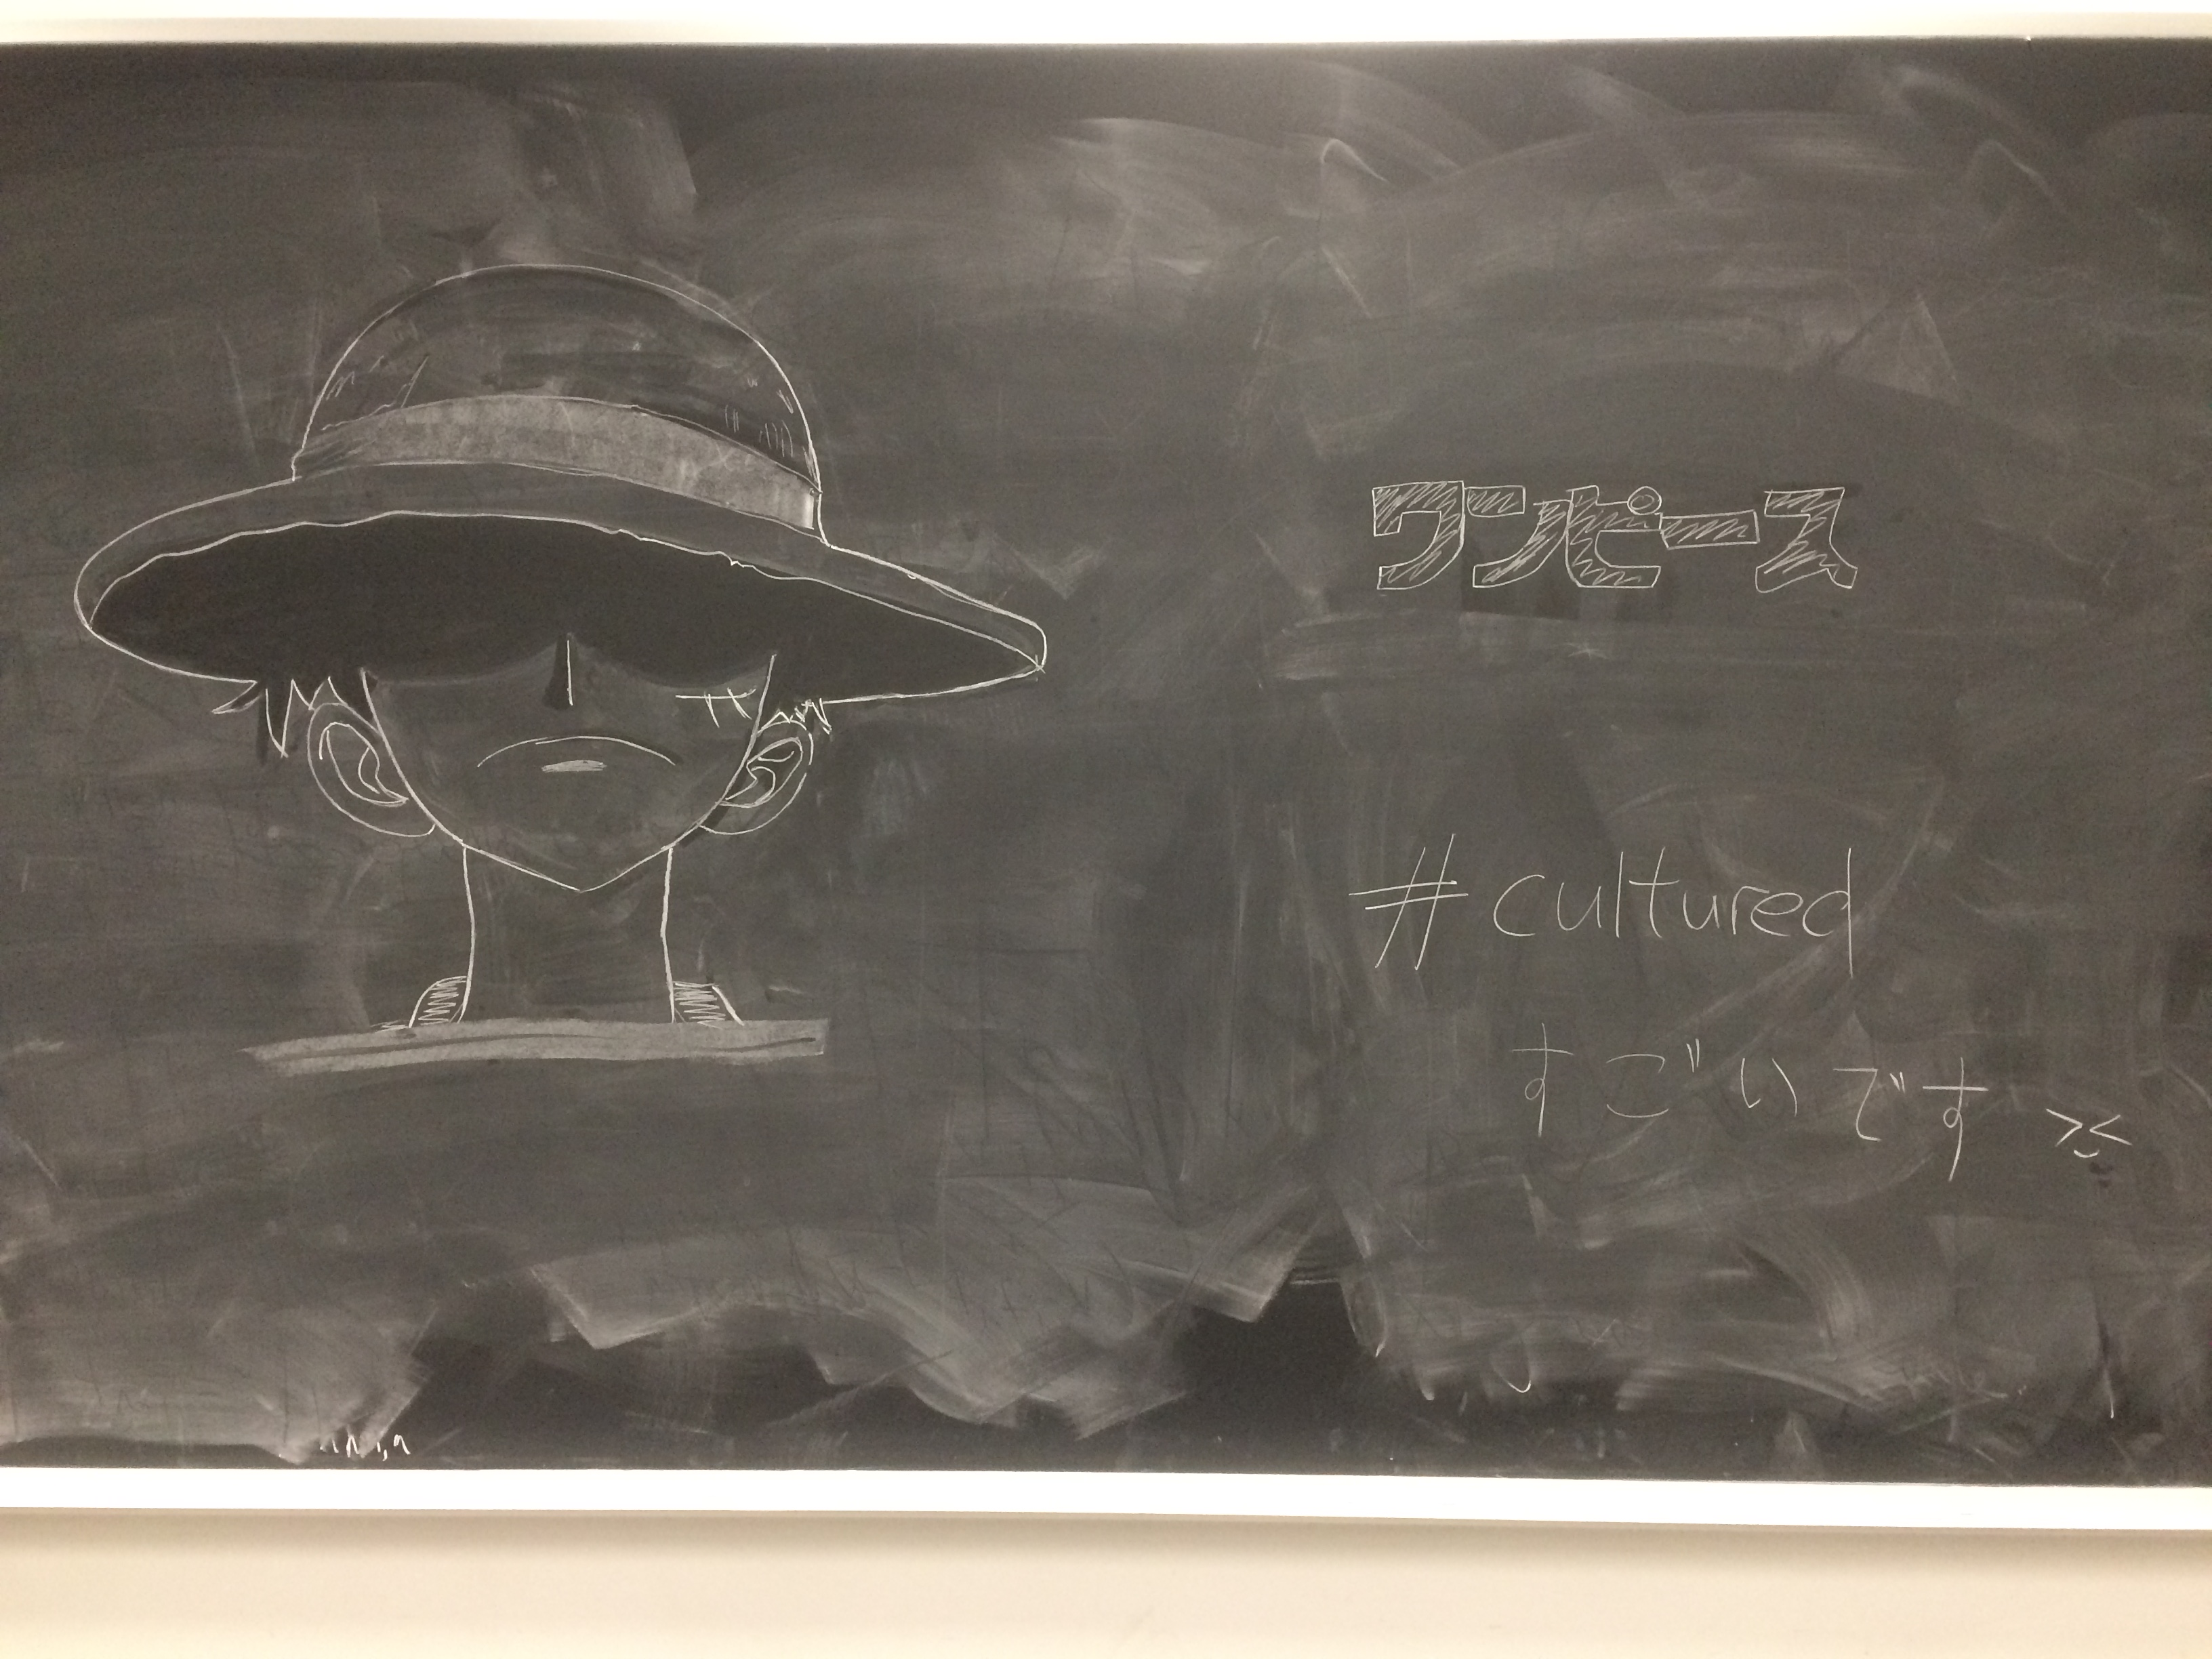 ワンピース
#cultured
すごいです ><